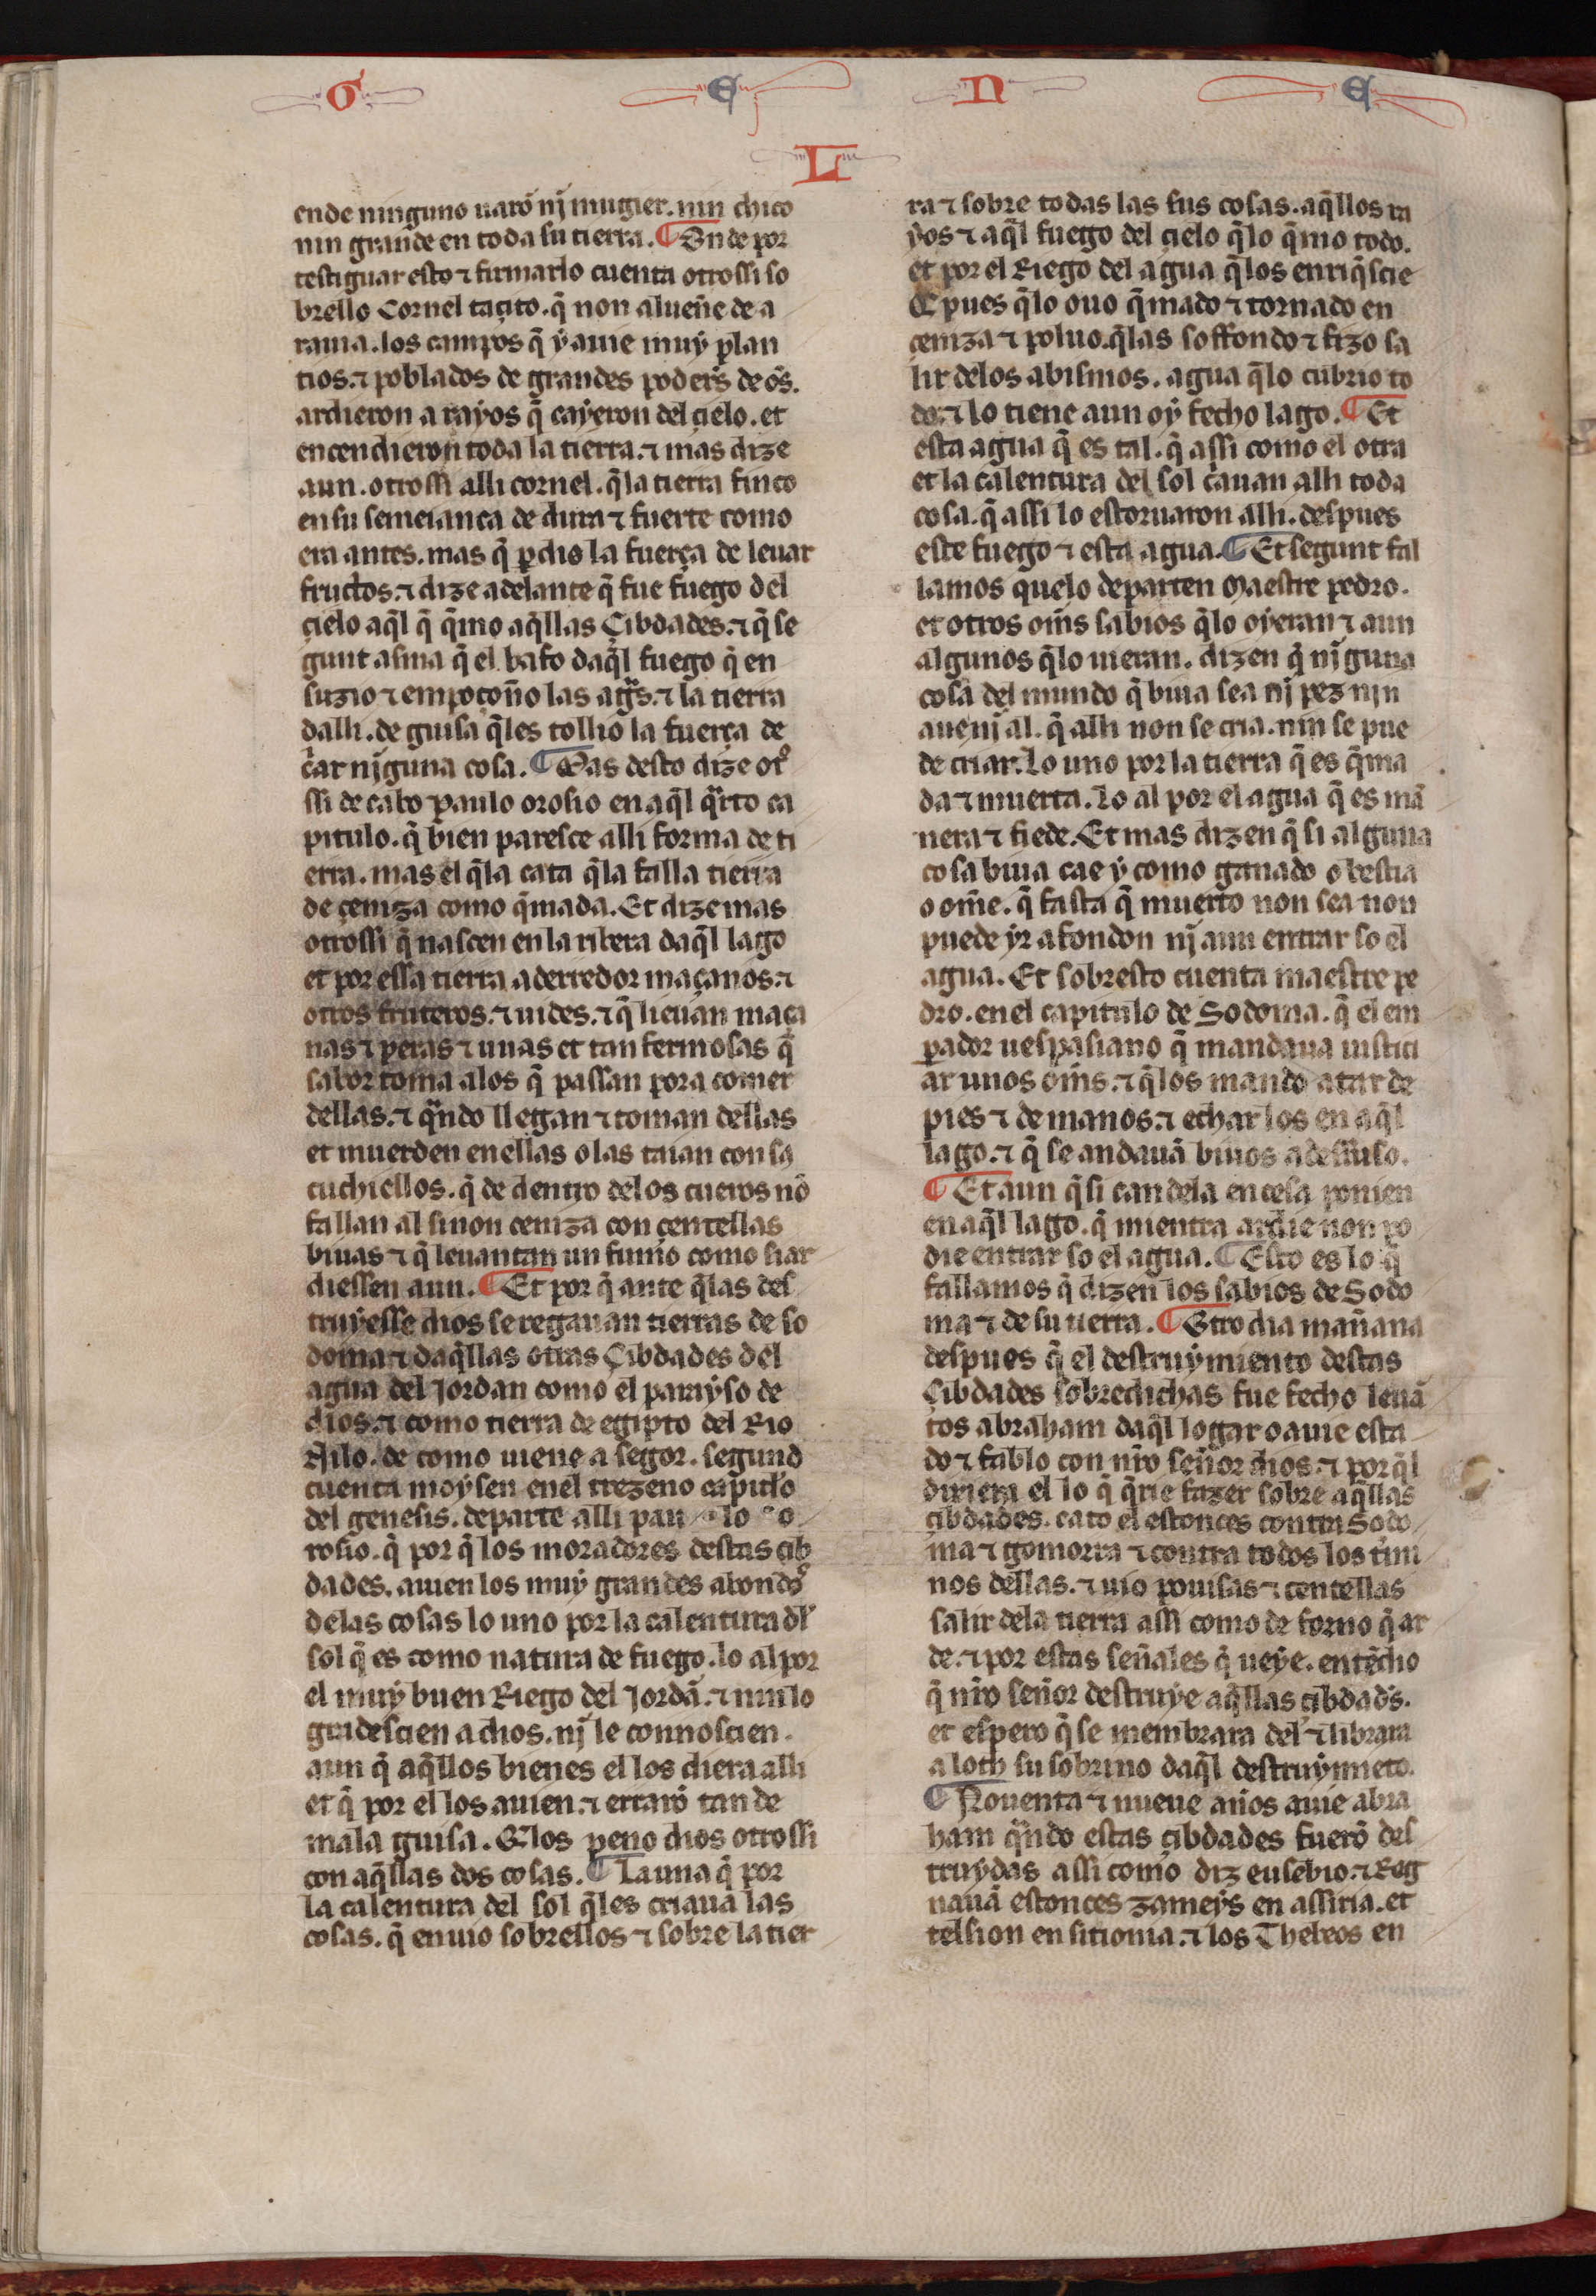 G E N E
L
ende ninguno uarõ nj̃ mugier. nin chico
nin grande en toda su tierra. ¶ Onde por
testiguar esto ⁊ firmarlo cuenta otrossi so
brello Cornel taçito. q̃ non alueñe de a
rauia. los campos q̃ ẏ auie muẏ plan
tios. ⁊ poblados de grandes poders̃ de os̃.
ardieron a raẏos q̃ caẏeron del çielo. et
encendieron toda la tierra. ⁊ mas dize
aun. otrossi alli cornel. q̃la tierra finco
en su semeianca de dura ⁊ fuerte como
era antes. mas q̃ ꝑdio la fuerça de leuar
fructos. ⁊ dize adelante q̃ fue fuego del
çielo aq̃l q̃ q̃mo aq̃llas Çibdades. ⁊ q̃ se
gunt asma q̃ el bafo daq̃l fuego q̃ en
suzio ⁊ empoçoño las ag̃s. ⁊ la tierra
dalli. de guisa q̃les tollio la fuerça de
c̃ar nj̃guna cosa. ¶ Mas desto dize otͦ
ssi de cabo paulo orosio en aq̃l q̃rto ca
pitulo. q̃ bien paresce alli forma de ti
erra. mas el q̃la cata q̃la falla tierra
de çeniza como q̃mada. Et dize mas
otrossi q̃ nascen en la ribera daq̃l lago
et por essa tierra aderredor maçanos. ⁊
otros fruteros. ⁊ uides. ⁊ q̃ lieuan maça
nas ⁊ peras ⁊ uuas et tan fermosas q̃
sabor toma alos q̃ passan pora comer
dellas. ⁊ q̃ndo llegan ⁊ toman dellas
et muerden en ellas o las taian con sa
cuchiellos. q̃ de dentro delos cueros nõ
fallan al sinon ceniza con çentellas
biuas ⁊ q̃ leuantan un fumo como si ar
diessen aun. ¶ Et por q̃ ante q̃las des
truẏesse dios se regauan tierras de so
doma ⁊ daq̃llas otras Çibdades del
agua del Jordan como el paraẏso de
dios. ⁊ como tierra de egipto del Rio
Nilo. de como uiene a segor. segund
cuenta moẏsen enel trezeno capitl̃o
del genesis. departe alli pau lo o
rosio. q̃ por q̃ los moradores destas çib
dades. auien los muẏ grandes abondos̃
delas cosas lo uno por la calentura dl̃
sol q̃ es como natura de fuego. lo al por
el muẏ buen Riego del Jordã. ⁊ nin lo
gradescien a dios. nj̃ le connoscien.
aun q̃ aq̃llos bienes el los diera alli
et q̃ por el los auien. ⁊ erraro᷈ tan de
mala guisa. Et los peno dios otrossi
con aq̃llas dos cosas. ¶ La una q̃ por
la calentura del sol q̃les criauã las
cosas. q̃ enuio sobrellos ⁊ sobre la tier
ra ⁊ sobre todas las sus cosas. aq̃llos ra
ẏos ⁊ aq̃l fuego del çielo q̃lo q̃mo todo.
et por el Riego del agua q̃los enriq̃scie
Et pues q̃lo ouo q̃mado ⁊ tornado en
çeniza ⁊ poluo. q̃las soffondo ⁊ fizo sa
lir delos abismos. agua q̃lo cubrio to
do. ⁊ lo tiene aun oẏ fecho lago. ¶ Et
esta agua q̃ es tal. q̃ assi como el otra
et la calentura del sol c̃auan alli toda
cosa. q̃ assi lo estoruaron alli. despues
este fuego ⁊ esta agua. ¶ Et segunt fal
lamos quelo departen Maestre pedro.
et otros om̃s sabios q̃lo oẏeran ⁊ aun
algunos q̃lo uieran. dizen q̃ nj̃guna
cosa del mundo q̃ biua sea nj̃ pez njn
aue nj̃ al. q̃ alli non se cria. nin se pue
de criar. Lo uno por la tierra q̃ es q̃ma
da ⁊ muerta. lo al por el agua q̃ es mã
nera ⁊ fiede. Et mas dizen q̃ si alguna
cosa biua cae ẏ como ganado o bestia
o om̃e. q̃ fasta q̃ muerto non sea non
puede ẏr a fondon nj̃ aun entrar so el
agua. Et sobresto cuenta maestre pe
dro. en el capitulo de Sodoma. q̃ el em
ꝑador uespasiano q̃ mandaua iustici
ar unos om̃s. ⁊ q̃los mando atar de
pies ⁊ de manos. ⁊ echar los en aq̃l
lago. ⁊ q̃ se andauã biuos a dessuso.
¶ Et aun q̃ si candela encesa ponien
en aq̃l lago. q̃ mientra ardie non po
die entrar so el agua. ¶ Esto es lo q̃
fallamos q̃ dizen los sabios de Sodo
ma ⁊ de su tierra. ¶ Otro dia mañana
despues q̃ el destruẏmiento destas
Çibdades sobredichas fue fecho leuã
tos abraham daq̃l logar o auie esta
do ⁊ fablo con nr̃o señor dios. ⁊ por q̃l
dixiera el lo q̃ q̃rie fazer sobre aq̃llas
çibdades. cato el estonces contra Sodo
ma ⁊ gomorra ⁊ contra todos los t̃mi
nos dellas. ⁊ uio pouisas ⁊ centellas
salir dela tierra assi como de forno q̃ ar
de. ⁊ por estas señales q̃ ueẏe. entẽdio
q̃ nr̃o señor destruẏe aq̃llas çibdads̃.
et espero q̃ se membrara del ⁊ librara
a loth su sobrino daq̃l destruẏmieto.
¶ Nouenta ⁊ nueue años auie abra
ham q̃ndo estas çibdades fuerõ des
truẏdas assi como diz eusebio. ⁊ Reg
nauã estonces zameẏs en assiria. et
telsion en sitionia. ⁊ los Thebeos en